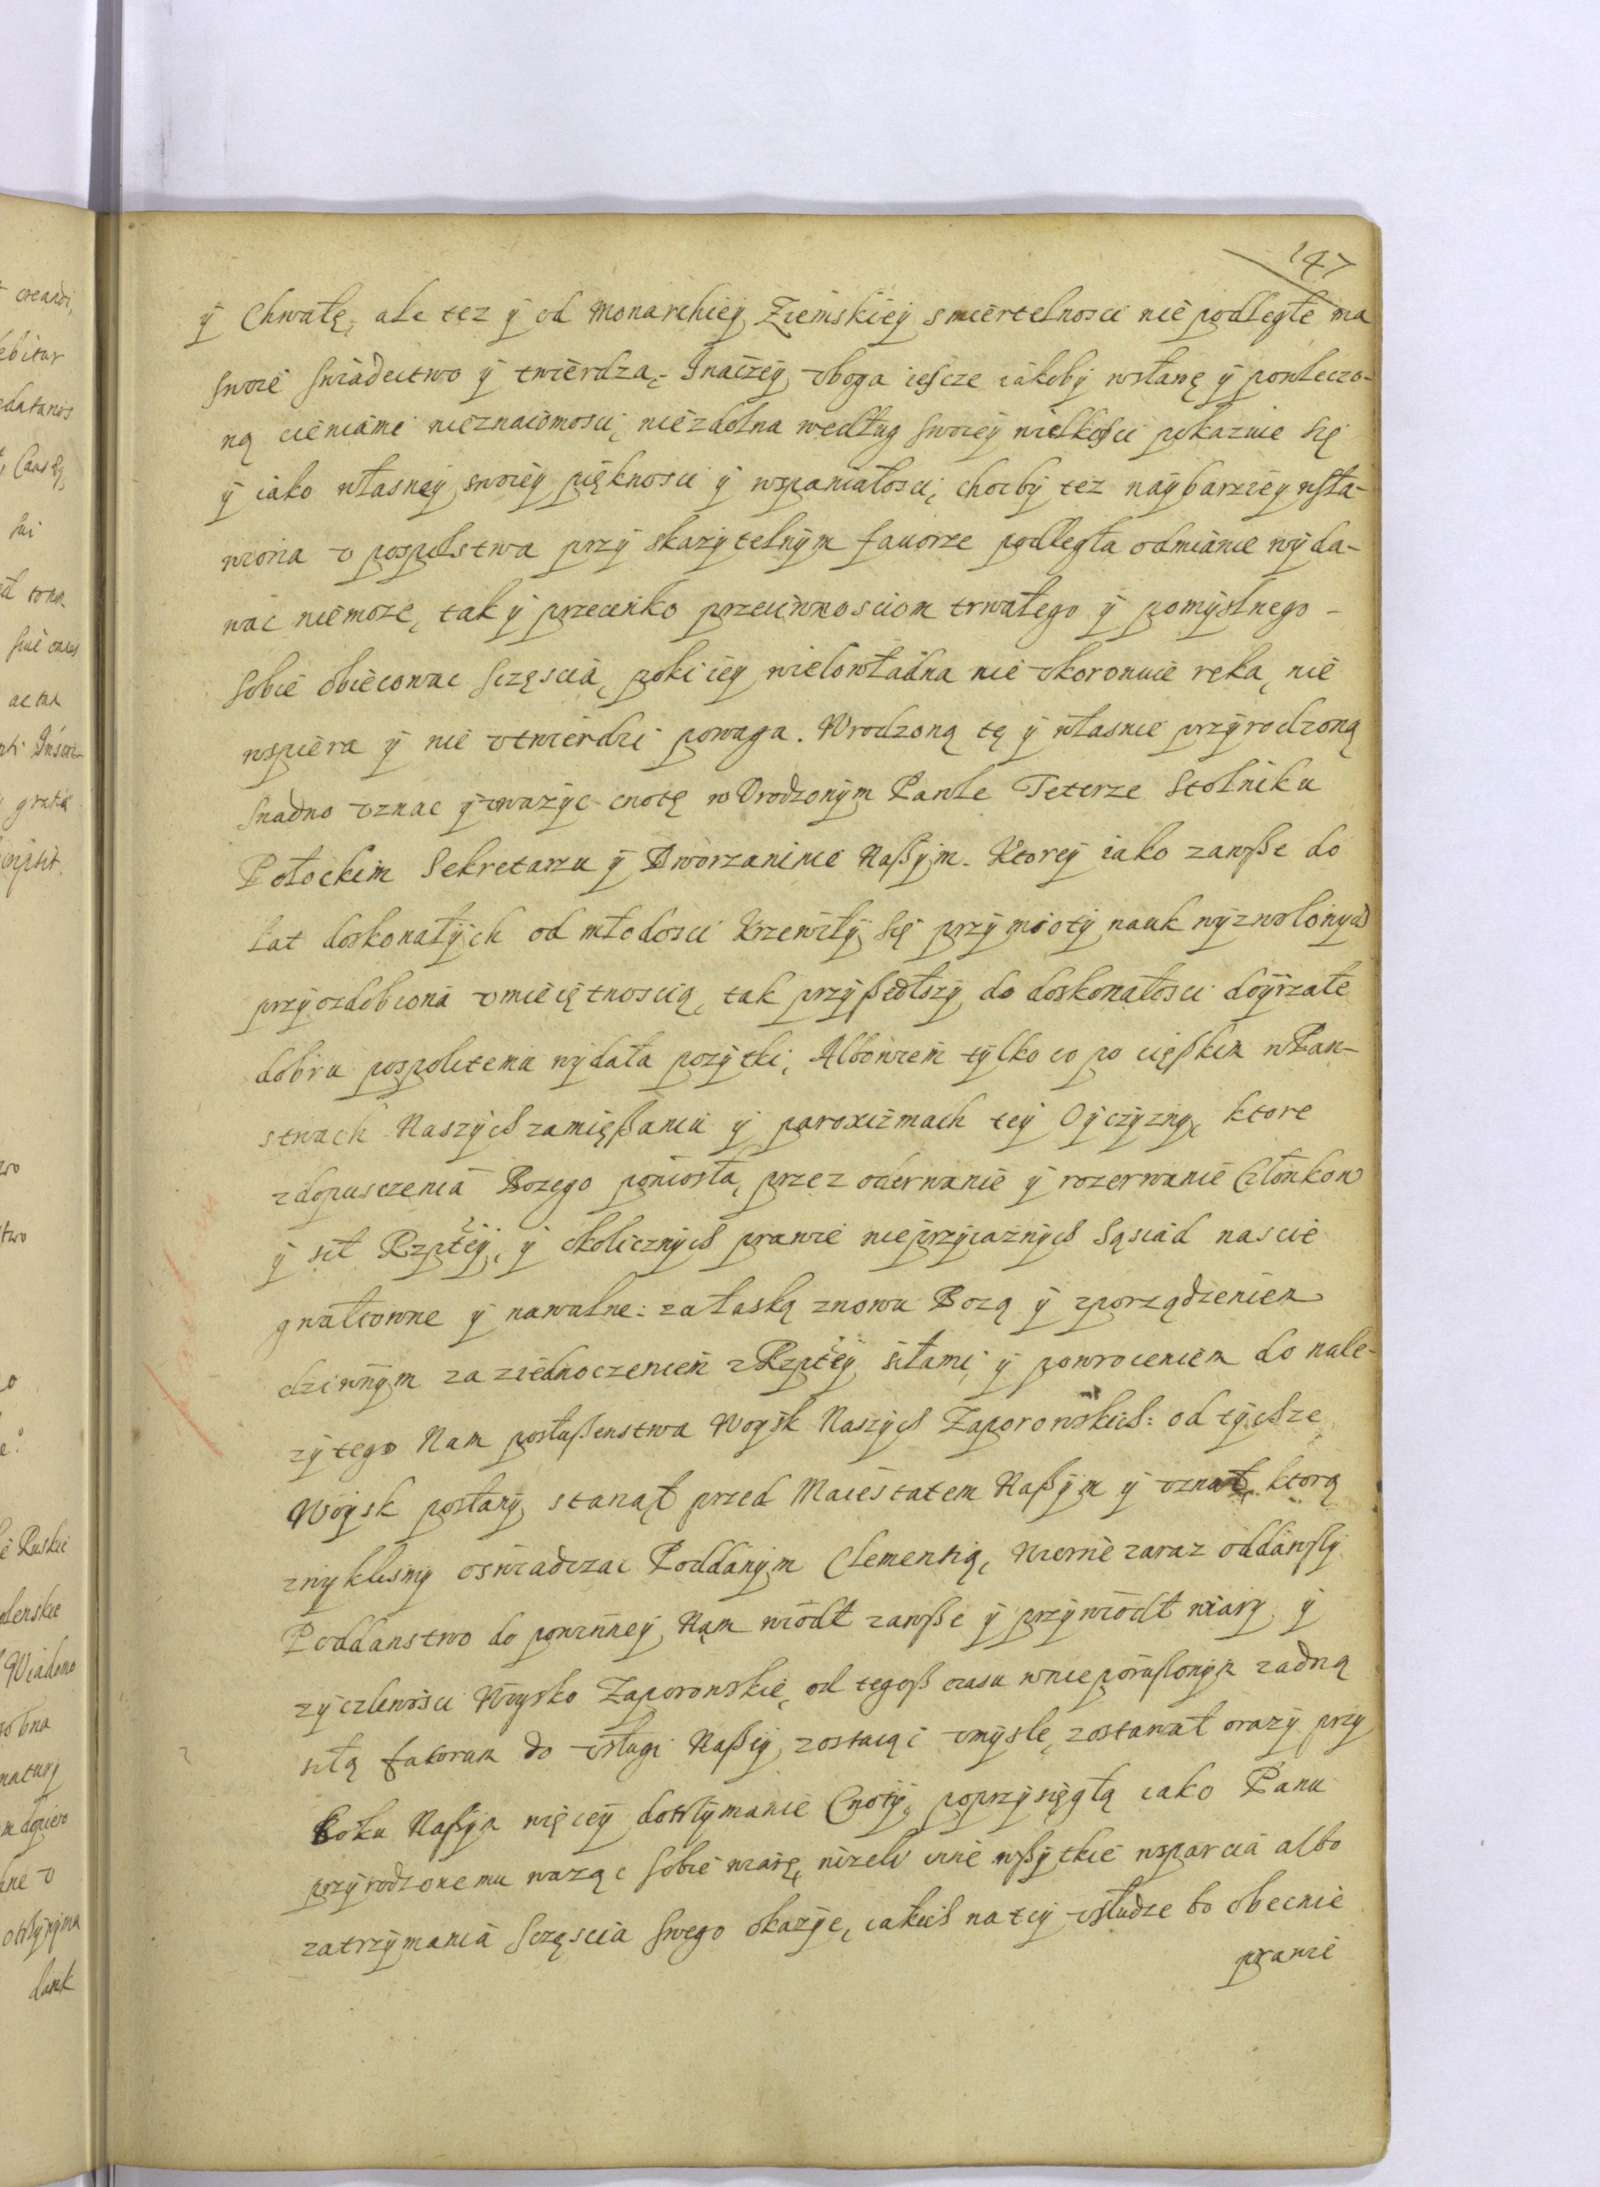 147
ÿ Chwałę, ale tez ÿ od Monarchieÿ Ziemskieÿ smiertelnosci nie podległe ma
swoie swiadectwo ÿ twierdzą. Inaczeÿ vboga iescze iakobÿ wsławę ÿ powleczo-
ną cieniami nieznaiomosci, niezdolna według swoieÿ wielkosci pokazuie się
ÿ iako własneÿ swoieÿ pięknosci ÿ wspaniałosci, chocbÿ tez naÿbarzieÿ wsła-
wiona v pospolstwa przÿ skazÿtelnÿm fauorze podległa odmianie wÿda-
wac niemoze, tak ÿ przeciwko przeciwnosciom trwałego ÿ pomÿslnego -
sobie obiecowac sczęscia, poki ieÿ wielowładna nie vkoronuie ręka, nie
wspiera ÿ nie vtwierdzi powaga. Wrodzoną tę ÿ własnie przÿrodzoną
snadno vznac ÿ vwazÿc cnotę w Vrodzonÿm Pawle Teterze Stolniku
Połockim Sekretarzu ÿ Dworzaninie Naßÿm. Ktoreÿ iako zawße do
lat doskonałÿch od młodosci krzewiłÿ się przÿmiotÿ nauk wÿzwolonÿch
przÿozdobiona vmieiętnoscią, tak przÿßedłszÿ do doskonałosci doÿrzałe
dobru pospolitemu wÿdała pozÿtki, Albowiem tÿlko co po cięßkim wPan-
stwach Naszÿch zamięßaniu ÿ paroxizmach teÿ Oÿczÿznÿ, ktore
zdopusczenia Bozego poniosła, przez oderwanie ÿ rozerwanie Członkow
ÿ sił Rzpteÿ, ÿ okolicznÿch prawie nieprzÿiaznÿch Sąsiad nascie
gwałtowne ÿ nawalne: załaską znowu Bozą ÿ zporządzeniem
dziwnÿm zaziednoczeniem zRzpteÿ siłami ÿ powroceniem do nale-
zÿtego Nam posłußenstwa Woÿsk Naszÿch Zaporowskich: od tÿchze
Woÿsk posłanÿ stanął przed Maiestatem Naßÿm ÿ vznał, ktorą
zwÿklismÿ oswiadczac Poddanÿm Clementią, Wiernie zaraz oddawszÿ
Poddanstwo do powinneÿ Nam wiodł zawße ÿ przÿwiodł wiarÿ ÿ
zÿczliwosci Woÿsko Zaporowskie, od tegoß czasu wnieporuszonÿm zadną
siłą fatorum do vsługi Naßÿ zostaiąc vmÿsle, zostawał orazÿ przÿ
Boku Naßÿm więceÿ dotrzÿmanie Cnotÿ, poprzÿsięgłą iako Panu
przÿrodzonemu waząc sobie wiarę, nizeli inne wßÿtkie wsparcia albo
zatrzÿmania sczęscia swego okazÿe, iakich na teÿ vsłudze bo obecnie
prawie